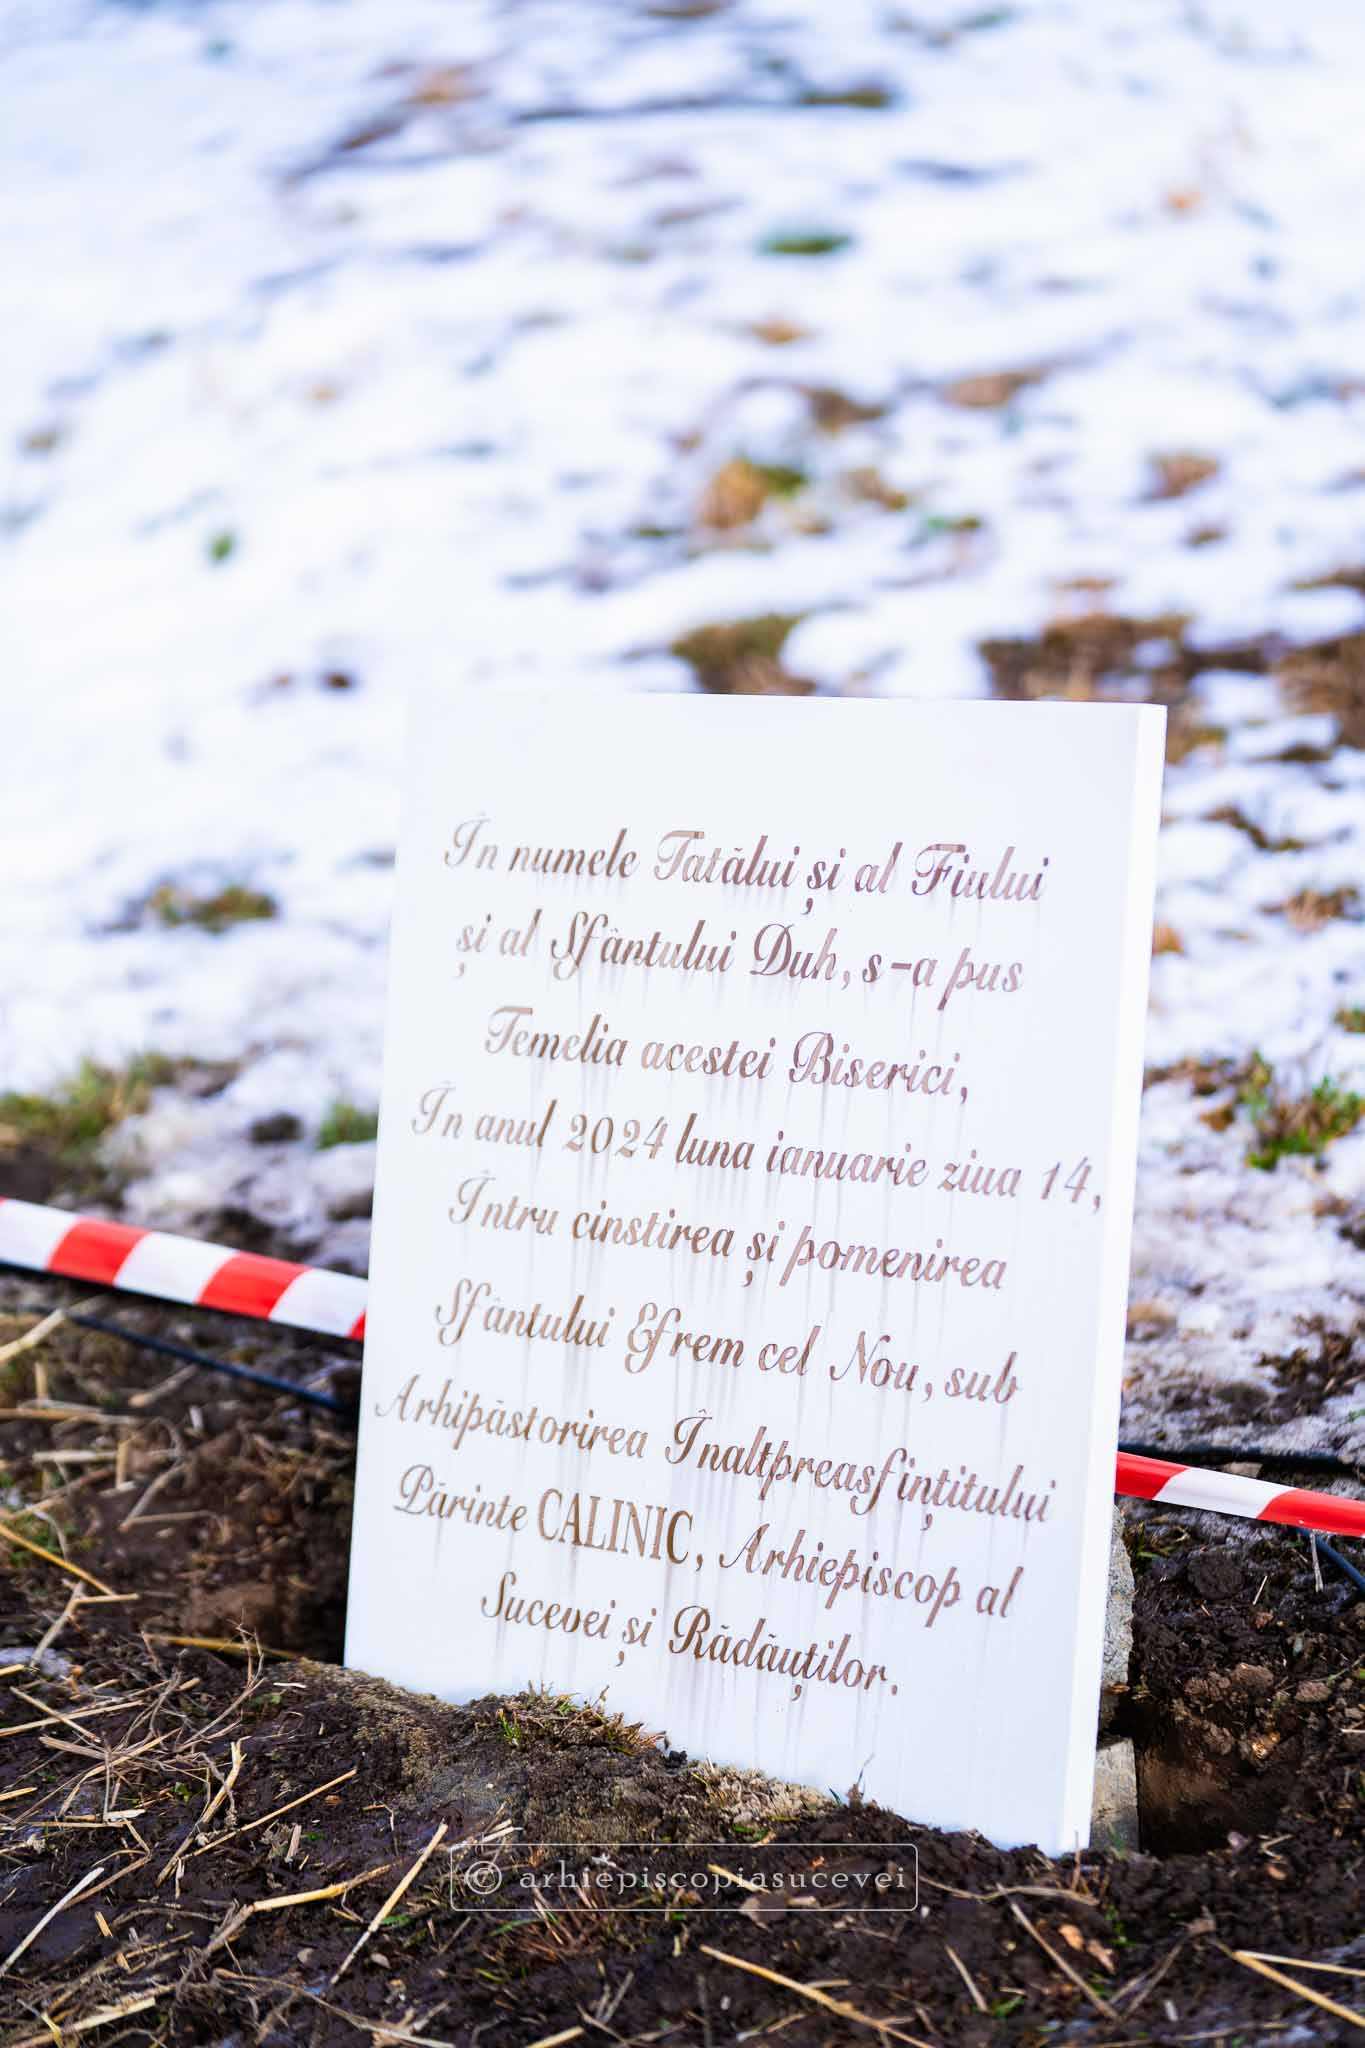 În numele Tatălui și al Fiului
și al Sfântului Duh, s-a pus
Temelia acestei Biserici,
În anul 2024 luna ianuarie ziua 14,
Întru cinstirea și pomenirea
Sfântului Efrem cel Nou, sub
Arhipăstorirea Înaltpreasfințitului
Părinte CALINIC, Arhiepiscop al
Sucevei și Rădăuților.
© arhiepiscopiasucevei